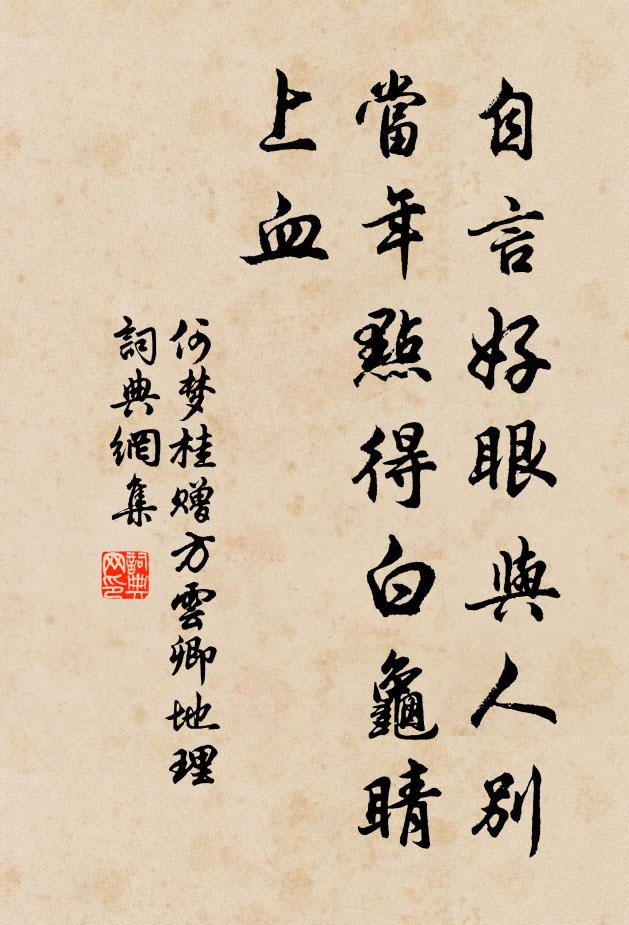 自言好眼與人別
當年點得白龜睛
上血
何梦桂赠方雲卿地理
詞典網集
詞典网印